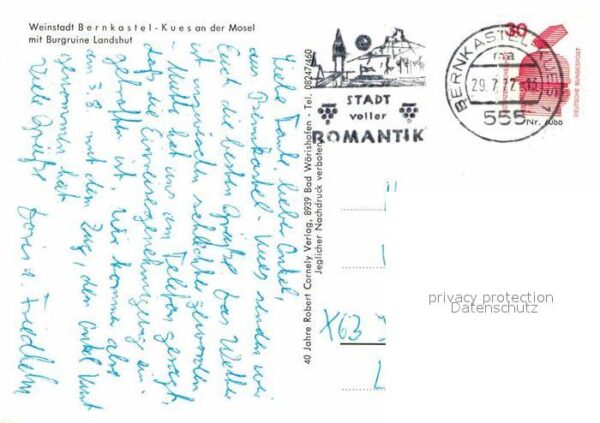 Weinstadt Bernkastel-Kues an der Mosel
mit Burgruine Landshut
Liebe Tante, lieber Onkel,
aus Bernkastel-Kues senden wir
Euch die besten Grüße. Das Wetter
ist inzwischen schlechter geworden
Mutti hat uns am Telefon gesagt,
daß die Einreisegenehmigung ein-
getroffen ist. Wir kommen also
am 3.8. mit dem Zug, den Onkel Kurt
genommen hat
Viele Grüße Doris u. Friedhelm
40 Jahre Robert Cornely Verlag, 8939 Bad Wörishofen - Tel. 08247/460
Jeglicher Nachdruck verboten
STADT
voller
ROMANTIK
BERNKASTEL-KUES 1
ma
29.7.
555
30
DEUTSCHE BUNDESPOST
Nr.
X63
privacy protection
Datenschutz